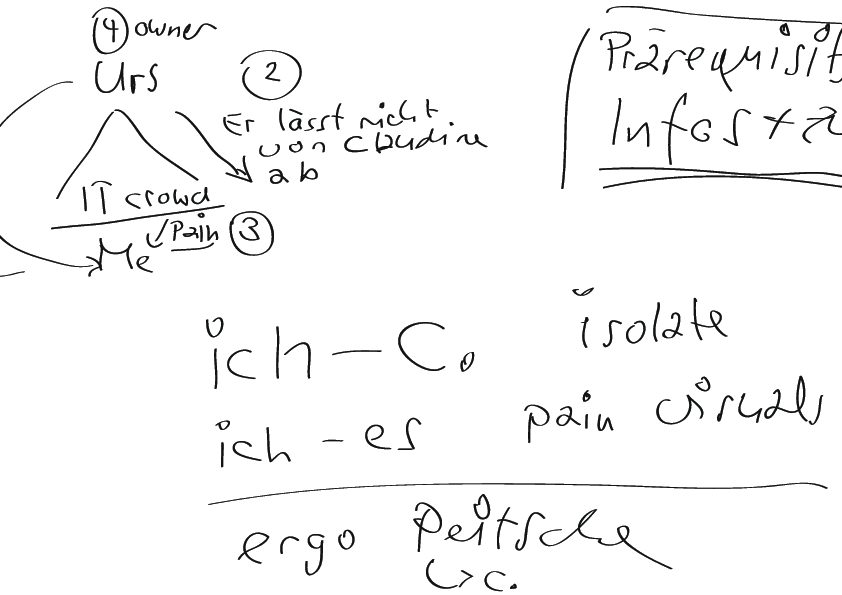 ④ owner
Urs
②
Er lässt nicht
von Claudine
ab
IT crowd
Pain ③
Me
Prärequisit
Infos +
ich – C.
isolate
ich – es
pain visuals
ergo Peitsche
↳ c.